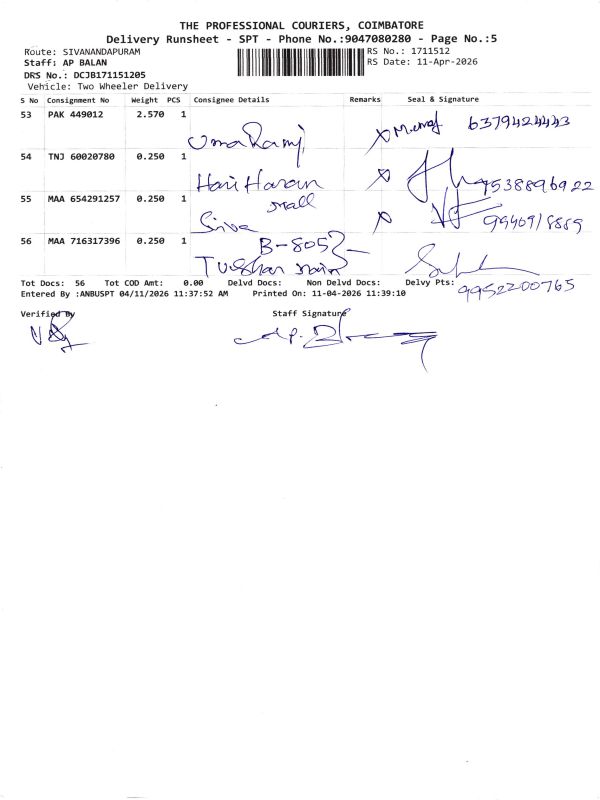 THE PROFESSIONAL COURIERS, COIMBATORE
Delivery Runsheet - SPT - Phone No.:9047080280 - Page No.:5
Route: SIVANANDAPURAM
RS No.: 1711512
Staff: AP BALAN
RS Date: 11-Apr-2026
DRS No.: DCJB171151205
Vehicle: Two Wheeler Delivery
S No Consignment No Weight PCS Consignee Details Remarks Seal & Signature
53 PAK 449012 2.570 1
Uma Ramj 6379424443
54 TNJ 60020780 0.250 1
Hari Haran 9538896922
55 MAA 654291257 0.250 1
Siva
56 MAA 716317396 0.250 1
B-805
Tushar
Tot Docs: 56 Tot COD Amt: 0.00 Delvd Docs: Non Delvd Docs: Delvy Pts:
9952200765
Entered By :ANBUSPT 04/11/2026 11:37:52 AM Printed On: 11-04-2026 11:39:10
Verified By Staff Signature